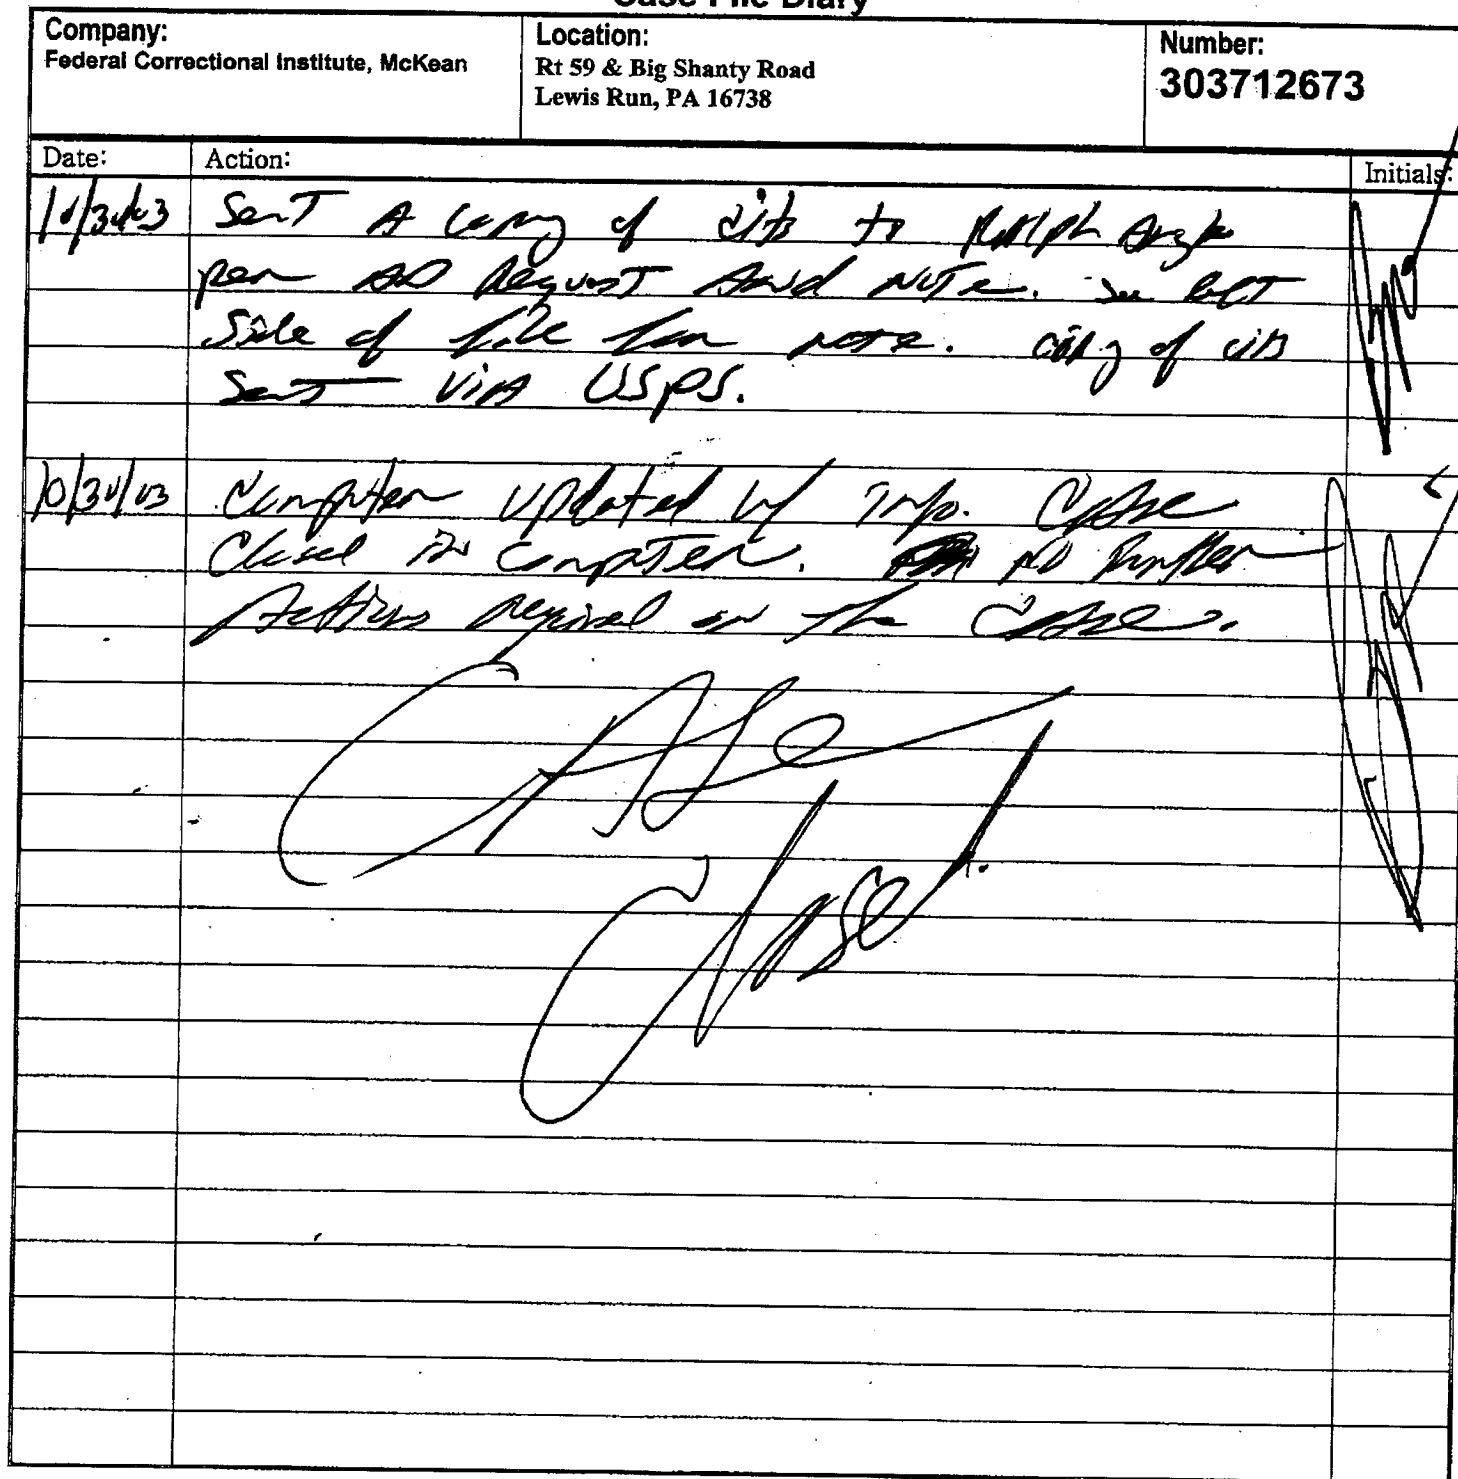 Case File Diary
Company:
Federal Correctional Institute, McKean
Location:
Rt 59 & Big Shanty Road
Lewis Run, PA 16738
Number:
303712673
Date:
Action:
Initials:
10/30/03
Sent A copy of cits to Ralph
per AD Request And Note. See left
Side of file for note. copy of cits
Sent via USPS.
10/30/03
Computer updated w/ Info. Case
Closed in computer. no further
Actions required on the Case.
CASE
Closed.